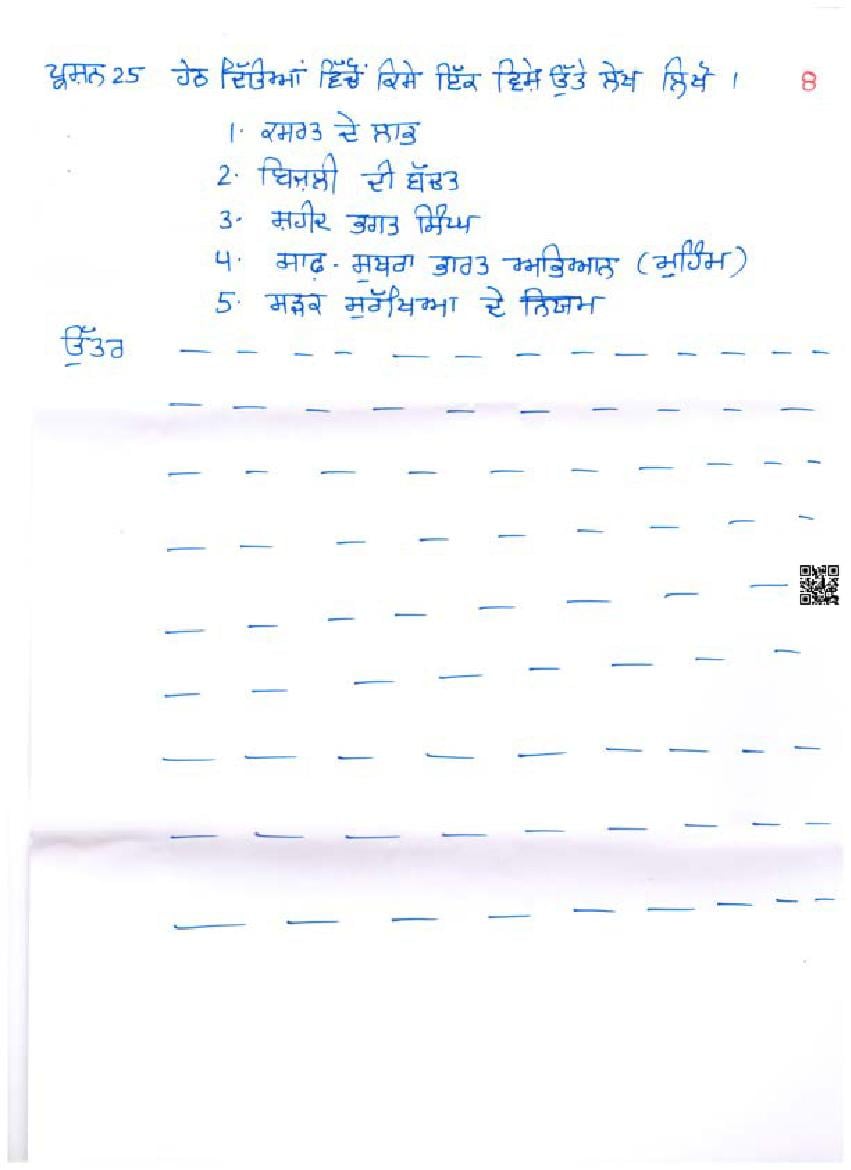 ਪ੍ਰਸ਼ਨ 25 ਹੇਠ ਦਿੱਤਿਆਂ ਵਿੱਚੋਂ ਕਿਸੇ ਇੱਕ ਵਿਸ਼ੇ ਉੱਤੇ ਲੇਖ ਲਿਖੋ । 8
1. ਕਸਰਤ ਦੇ ਲਾਭ
2. ਬਿਜਲੀ ਦੀ ਬੱਚਤ
3. ਸ਼ਹੀਦ ਭਗਤ ਸਿੰਘ
4. ਸਾਫ਼ - ਸੁਥਰਾ ਭਾਰਤ ਅਭਿਆਨ (ਮੁਹਿੰਮ)
5. ਸੜਕ ਸੁਰੱਖਿਆ ਦੇ ਨਿਯਮ
ਉੱਤਰ